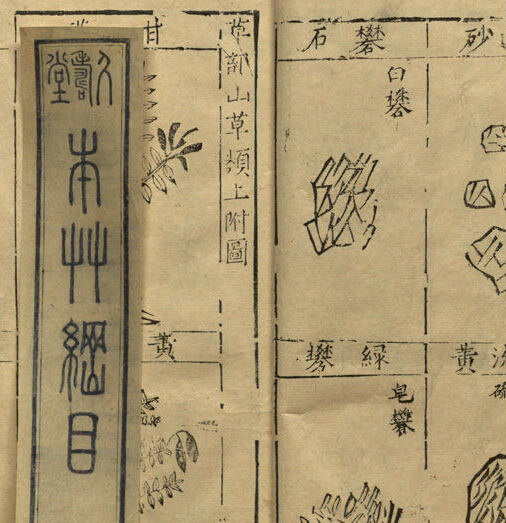 本艸綱目
草部山草類上附圖
甘
黃
砂
礬石
白礬
黃
綠礬
皂礬